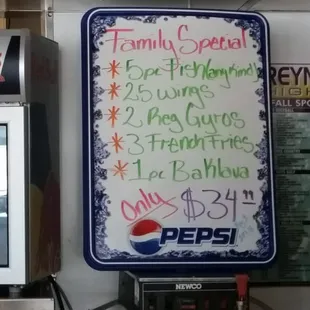 Family Special
* 5pc Fish (any Kind)
* 25 wings
* 2 Reg Gyros
* 3 French Fries
* 1pc Baklava
Only $34.99
PEPSI
NEWCO
REYN
HIGH
FALL SPO